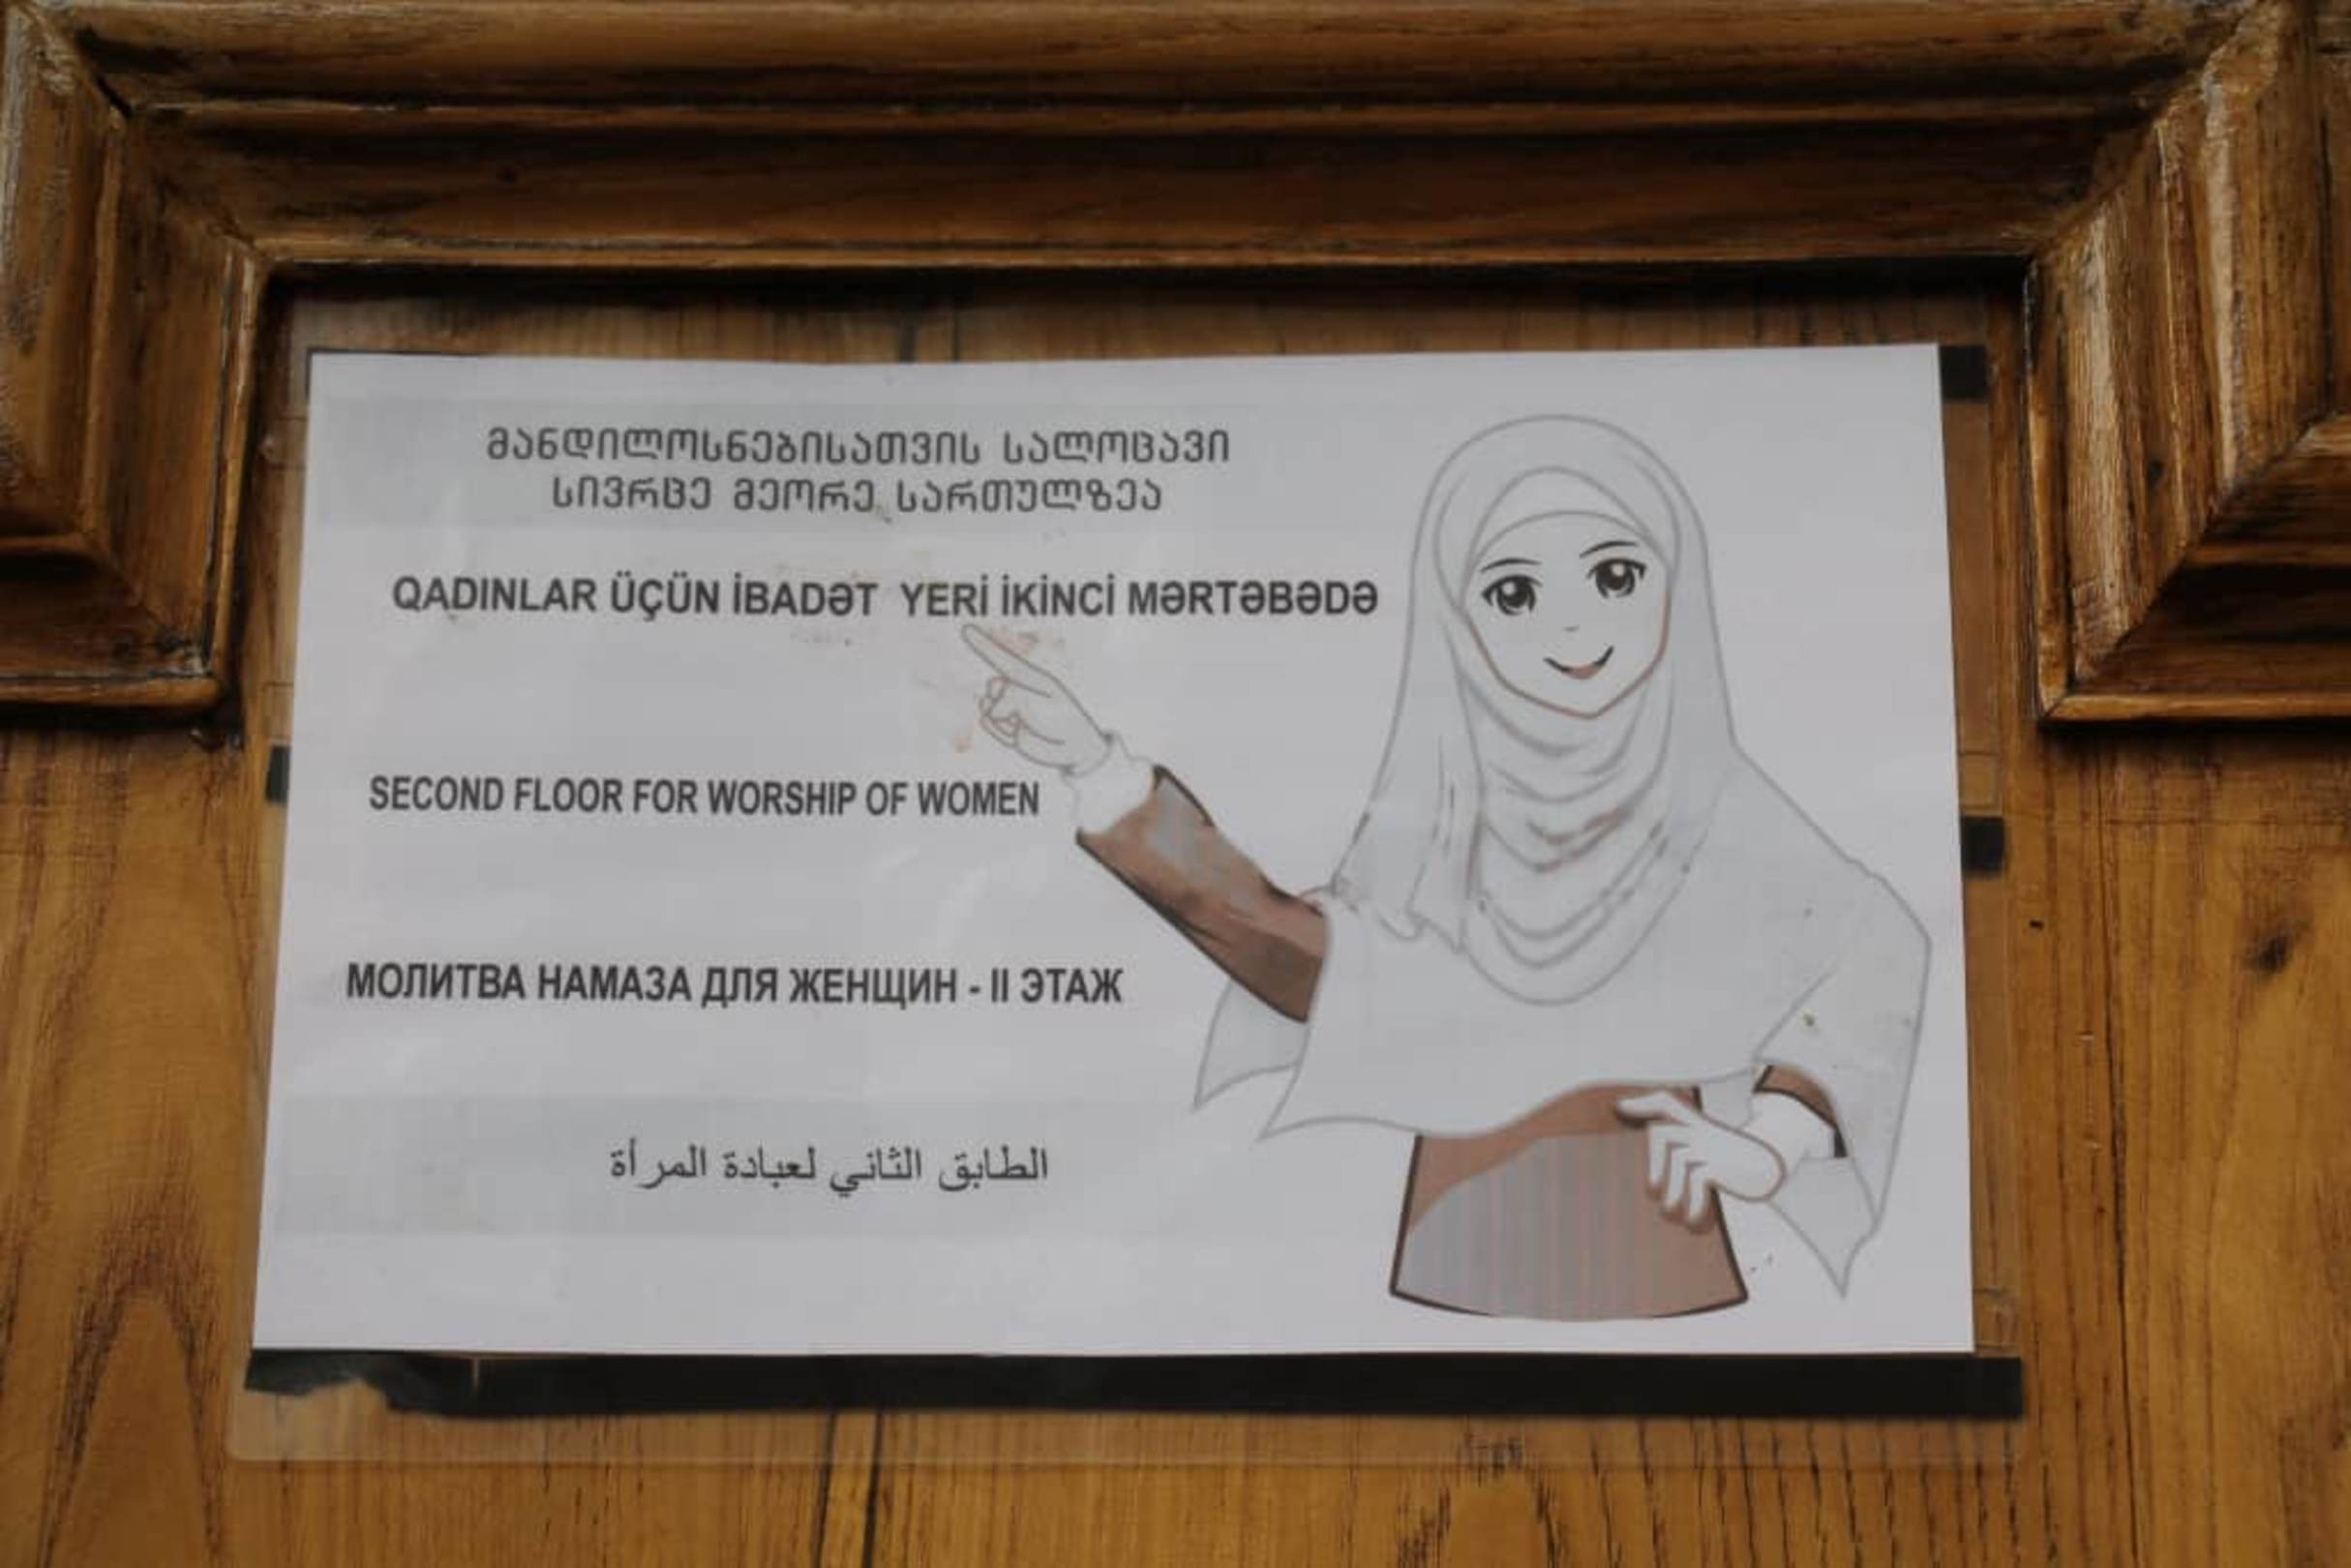 მანდილოსნებისათვის სალოცავი
სივრცე მეორე სართულზეა
QADINLAR ÜÇÜN İBADƏT YERİ İKİNCİ MƏRTƏBƏDƏ
SECOND FLOOR FOR WORSHIP OF WOMEN
МОЛИТВА НАМАЗА ДЛЯ ЖЕНЩИН - II ЭТАЖ
الطابق الثاني لعبادة المرأة